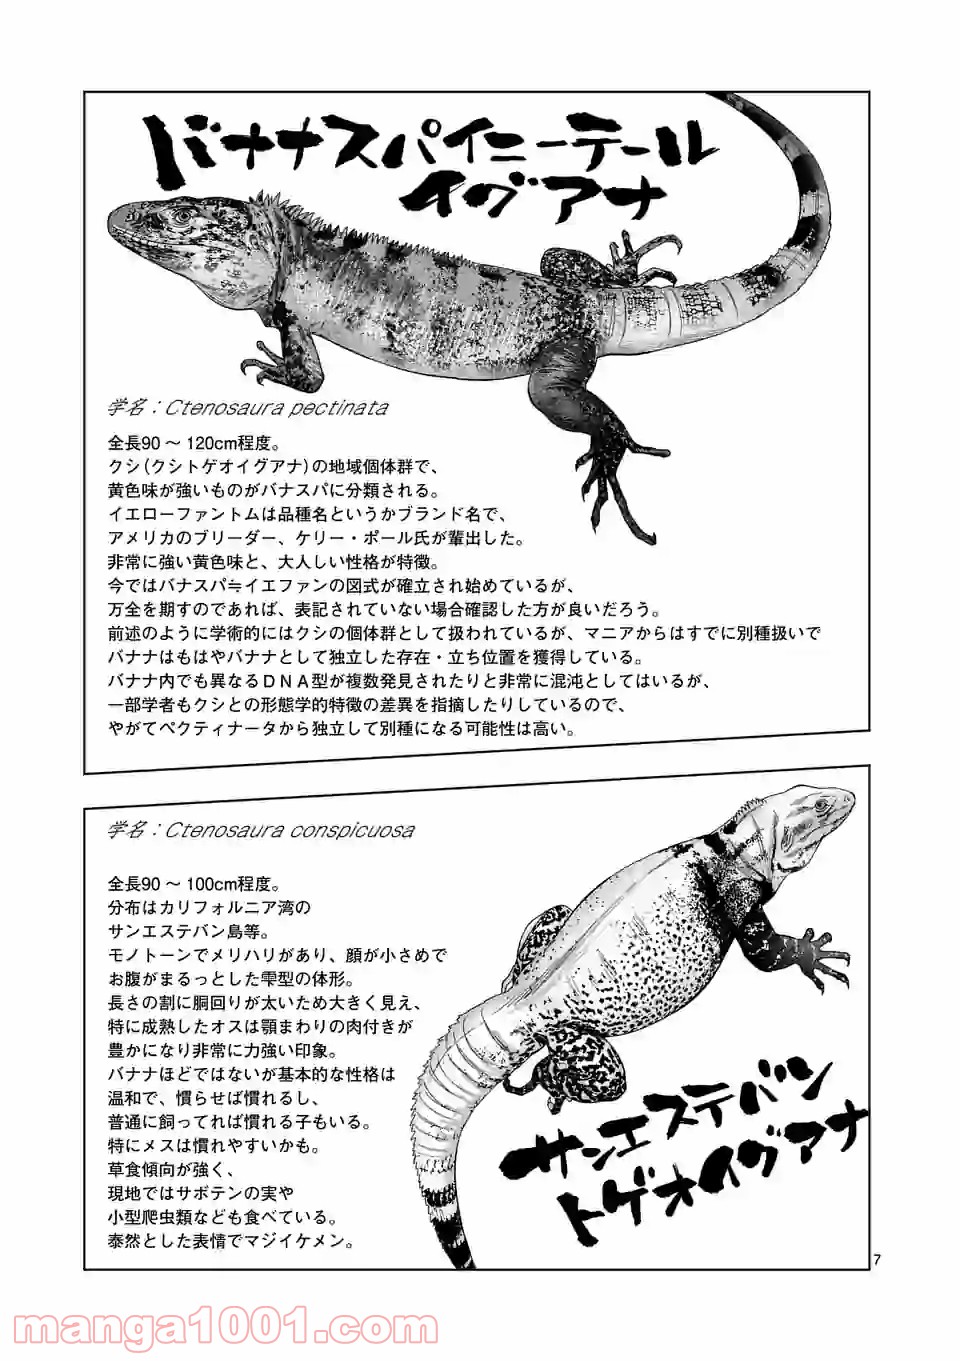 バナナスパイニーテール
イグアナ
学名：Ctenosaura pectinata
全長90～120cm程度。
クシ（クシトゲオイグアナ）の地域個体群で、
黄色味が強いものがバナスパに分類される。
イエローファントムは品種名というかブランド名で、
アメリカのブリーダー、ケリー・ポール氏が輩出した。
非常に強い黄色味と、大人しい性格が特徴。
今ではバナスパ≒イエファンの図式が確立され始めているが、
万全を期すのであれば、表記されていない場合確認した方が良いだろう。
前述のように学術的にはクシの個体群として扱われているが、マニアからはすでに別種扱いで
バナナはもはやバナナとして独立した存在・立ち位置を獲得している。
バナナ内でも異なるＤＮＡ型が複数発見されたりと非常に混沌としてはいるが、
一部学者もクシとの形態学的特徴の差異を指摘したりしているので、
やがてペクティナータから独立して別種になる可能性は高い。
学名：Ctenosaura conspicuosa
全長90～100cm程度。
分布はカリフォルニア湾の
サンエステバン島等。
モノトーンでメリハリがあり、顔が小さめで
お腹がまるっとした雫型の体形。
長さの割に胴回りが太いため大きく見え、
特に成熟したオスは顎まわりの肉付きが
豊かになり非常に力強い印象。
バナナほどではないが基本的な性格は
温和で、慣らせば慣れるし、
普通に飼ってれば慣れる子もいる。
特にメスは慣れやすいかも。
草食傾向が強く、
現地ではサボテンの実や
小型爬虫類なども食べている。
泰然とした表情でマジイケメン。
サンエステバン
トゲオイグアナ
7
manga1001.com